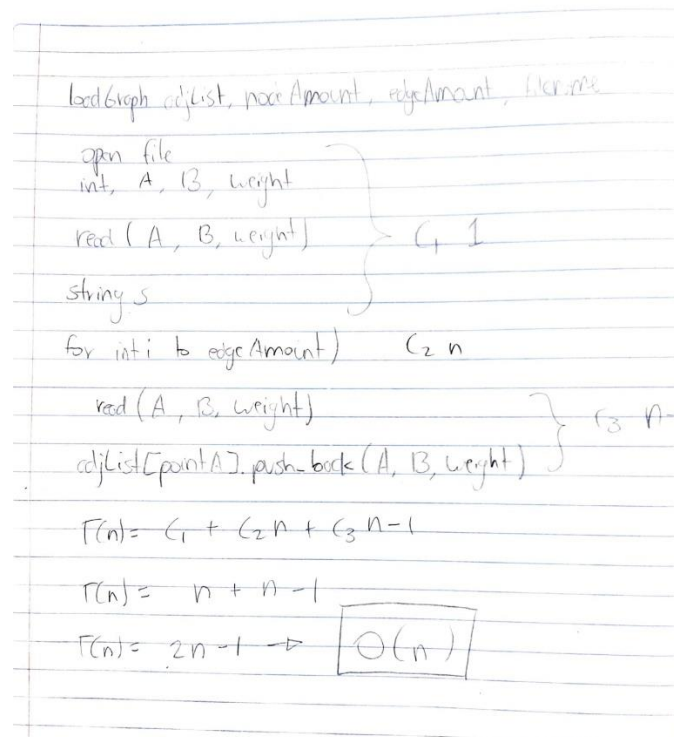 loadGraph adjList, nodeAmount, edgeAmount, filename
open file
int, A, B, weight
read (A, B, weight) } C1 1
string s
for int i to edgeAmount) C2 n
read (A, B, weight) } C3 n-
adjList[pointA].push_back(A, B, weight)
T(n)= C1 + C2n + C3n-1
T(n)= n + n -1
T(n)= 2n-1 → O(n)